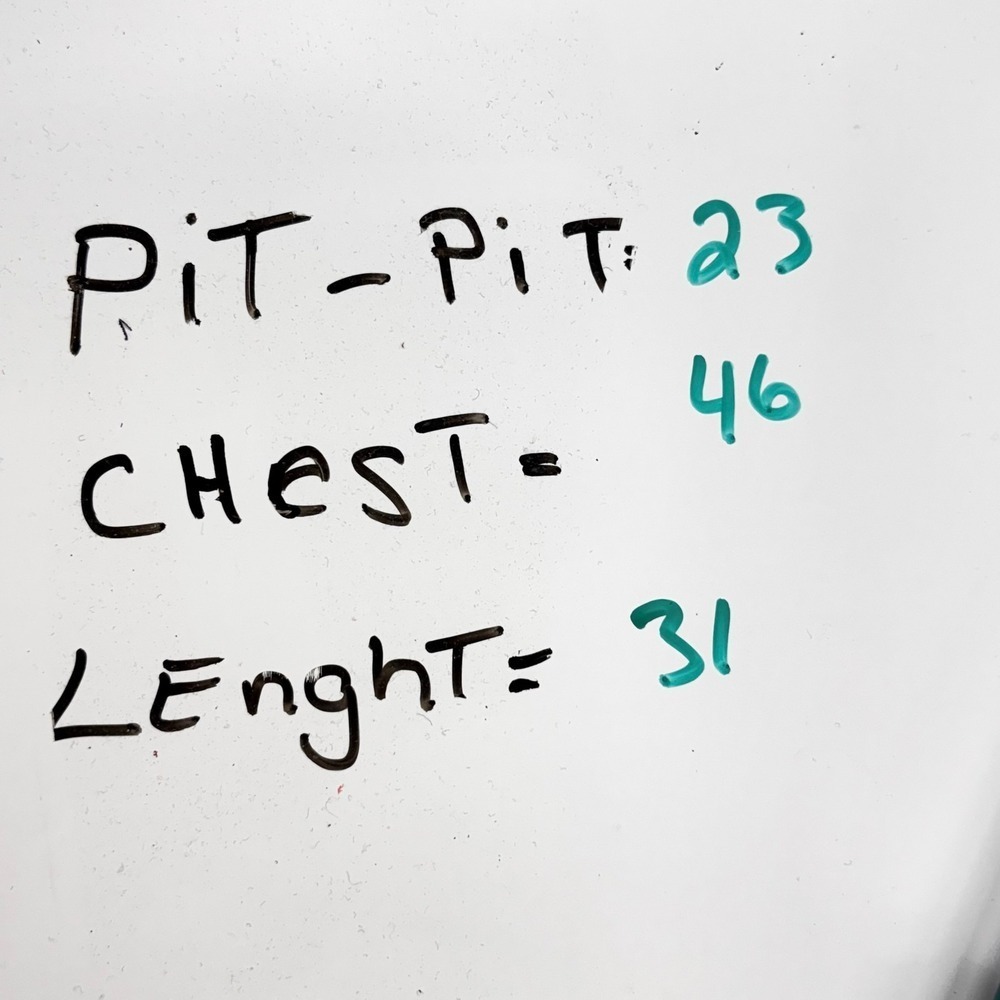 PiT - PiT: 23
CHesT = 46
LEnghT = 31